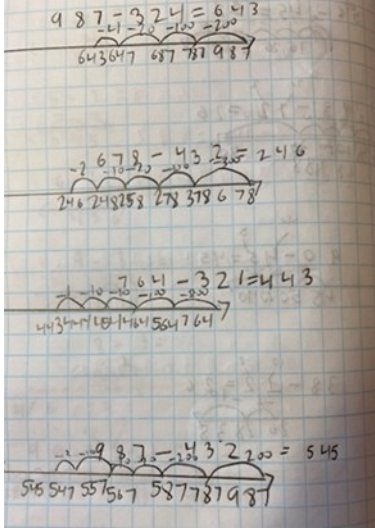 987-324=643
-4 -20 -100 -200
643 647 687 787 987
678-432=246
-2 -10 -20 -100 -300
246 248 258 278 378 678
764-321=443
-1 -10 -10 -100 -200
443 444 454 464 564 764
987-432=545
-2 -10 -20 -200 -200
545 547 557 567 587 787 987